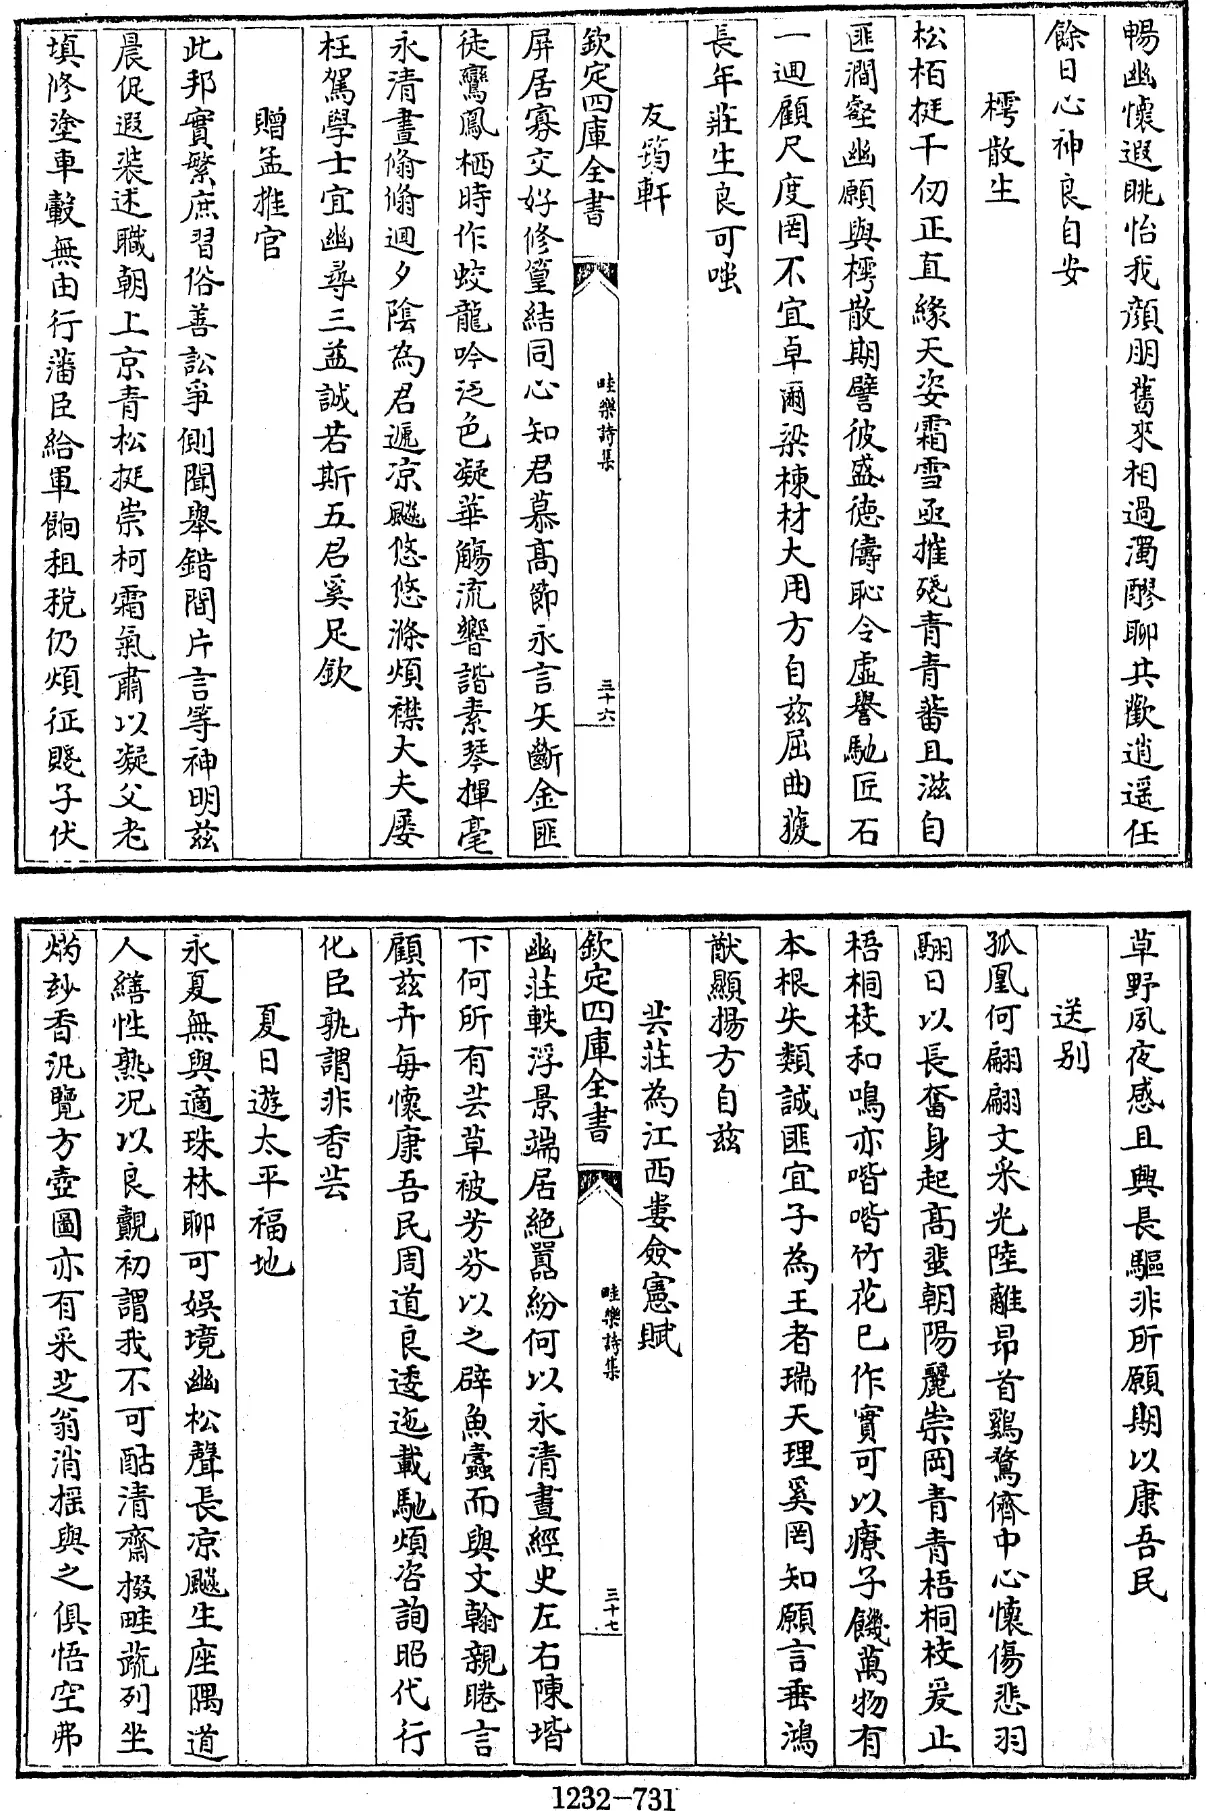 暢幽懷遐眺怡我顔朋舊來相過濁醪聊共歡逍遥任
餘日心神良自安
樗散生
松栢挺千仞正直緣天姿霜雪亟摧殘青青蕃且滋自
匪澗壑幽願與樗散期譬彼盛徳儔恥令虚譽馳匠石
一迴顧尺度罔不宜卓爾梁棟材大用方自兹屈曲獲
長年莊生良可嗤
友筠軒
欽定四庫全書
畦樂詩集
三十六
屏居寡交好修篁結同心知君慕髙節永言矢斷金匪
徒鸞鳳栖時作蛟龍吟泛色凝華觴流響諧素琴揮毫
永清晝翛翛迴夕陰為君遞凉飈悠悠滌煩襟大夫屢
枉駕學士宜幽尋三益誠若斯五君奚足欽
贈孟推官
此邦實繁庶習俗善訟爭側聞舉錯間片言等神明兹
晨促遐装述職朝上京青松挺崇柯霜氣肅以凝父老
填修塗車轂無由行藩臣給軍餉租稅仍煩征賤子伏
草野夙夜感且興長驅非所願期以康吾民
送别
孤凰何翩翩文采光陸離昻首鷄鶩儕中心懷傷悲羽
翮日以長奮身起髙蜚朝陽麗崇岡青青梧桐枝爰止
梧桐枝和鳴亦喈喈竹花已作實可以療子饑萬物有
本根失類誠匪宜子為王者瑞天理奚罔知願言垂鴻
猷顯揚方自兹
芸莊為江西婁僉憲賦
欽定四庫全書
畦樂詩集
三十七
幽莊軼浮景端居絶囂紛何以永清晝經史左右陳堦
下何所有芸草被芳芬以之辟魚蠹而與文翰親睠言
顧兹卉每懷康吾民周道良逶迤載馳煩咨詢昭代行
化臣孰謂非香芸
夏日遊太平福地
永夏無與適珠林聊可娯境幽松聲長凉飈生座隅道
人繕性熟况以良觀初謂我不可酤清齋掇畦蔬列坐
焫玅香汎覽方壺圖亦有采芝翁消揺與之俱悟空弗
1232-731